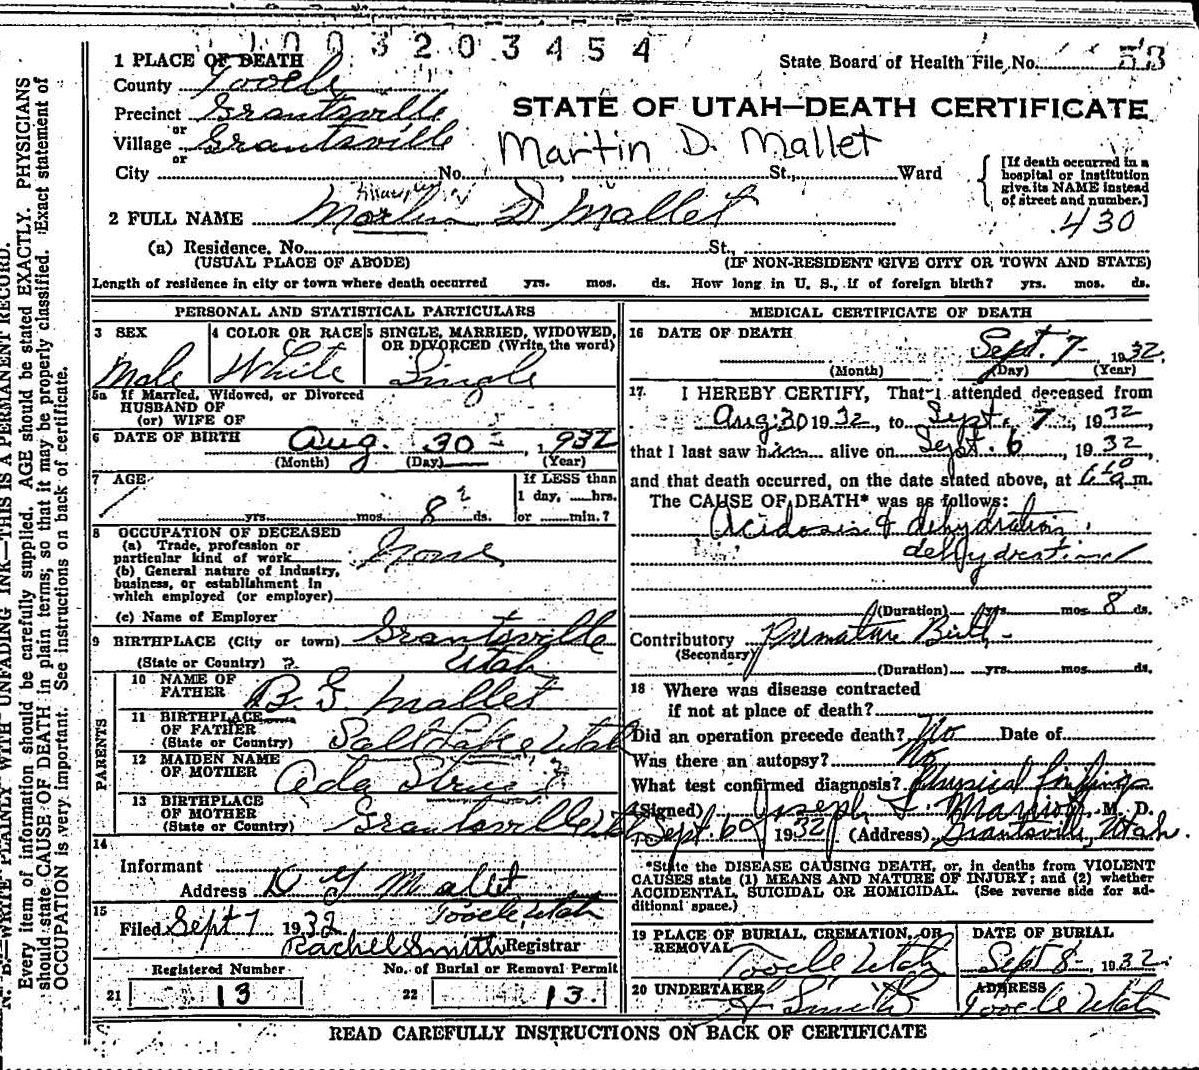 1003203454
1 PLACE OF DEATH
State Board of Health File No.
County Tooele
Precinct Grantsville
STATE OF UTAH—DEATH CERTIFICATE
or
Village Grantsville
Martin D. Mallet
or
City No. , St., Ward
[If death occurred in a
hospital or institution
give its NAME instead
of street and number.]
2 FULL NAME Martin D Mallet
430
(a) Residence. No. St.,
(USUAL PLACE OF ABODE) (IF NON-RESIDENT GIVE CITY OR TOWN AND STATE)
Length of residence in city or town where death occurred yrs. mos. ds. How long in U. S., if of foreign birth? yrs. mos. ds.
PERSONAL AND STATISTICAL PARTICULARS
3 SEX
Male
4 COLOR OR RACE
White
5 SINGLE, MARRIED, WIDOWED,
OR DIVORCED (Write the word)
Single
5a If Married, Widowed, or Divorced
HUSBAND OF
(or) WIFE OF
6 DATE OF BIRTH Aug. 30 - , 1932
(Month) (Day) (Year)
7 AGE
yrs. mos. 8 ds.
If LESS than
1 day, hrs.
or min.?
8 OCCUPATION OF DECEASED
(a) Trade, profession or
particular kind of work None
(b) General nature of industry,
business, or establishment in
which employed (or employer)
(c) Name of Employer
9 BIRTHPLACE (City or town) Grantsville
(State or Country) ? Utah
PARENTS
10 NAME OF
FATHER B. F. Mallet
11 BIRTHPLACE
OF FATHER
(State or Country) Salt Lake Utah
12 MAIDEN NAME
OF MOTHER Ada
13 BIRTHPLACE
OF MOTHER
(State or Country) Grantsville Utah
14
Informant
Address Mallet
Tooele, Utah
15
Filed Sept 7 1932
Rachel Smith Registrar
Registered Number
21 13
No. of Burial or Removal Permit
22 13.
MEDICAL CERTIFICATE OF DEATH
16 DATE OF DEATH
Sept. 7- 1932.
(Month) (Day) (Year)
17 I HEREBY CERTIFY, That I attended deceased from
Aug. 30 1932, to Sept. 7, 1932
that I last saw him alive on Sept. 6, 1932
and that death occurred, on the date stated above, at 6 10 a.m.
The CAUSE OF DEATH* was as follows:
Acidosis & dehydration.
dehydration
(Duration) yrs. mos. 8 ds.
Contributory Premature Birth-
(Secondary)
(Duration) yrs. mos. ds.
18 Where was disease contracted
if not at place of death?
Did an operation precede death? No Date of
Was there an autopsy? No
What test confirmed diagnosis? Physical findings
(Signed) Joseph M. D.
Sept. 6 1932 (Address) Grantsville, Utah.
*State the DISEASE CAUSING DEATH, or, in deaths from VIOLENT
CAUSES state (1) MEANS AND NATURE OF INJURY; and (2) whether
ACCIDENTAL, SUICIDAL OR HOMICIDAL. (See reverse side for ad-
ditional space.)
19 PLACE OF BURIAL, CREMATION, OR
REMOVAL
Tooele Utah
DATE OF BURIAL
Sept 8- 1932.
20 UNDERTAKER
Smith
ADDRESS
Tooele Utah
READ CAREFULLY INSTRUCTIONS ON BACK OF CERTIFICATE
N. B.—WRITE PLAINLY WITH UNFADING INK—THIS IS A PERMANENT RECORD.
Every item of information should be carefully supplied. AGE should be stated EXACTLY. PHYSICIANS
should state CAUSE OF DEATH in plain terms, so that it may be properly classified. Exact statement of
OCCUPATION is very important. See instructions on back of certificate.